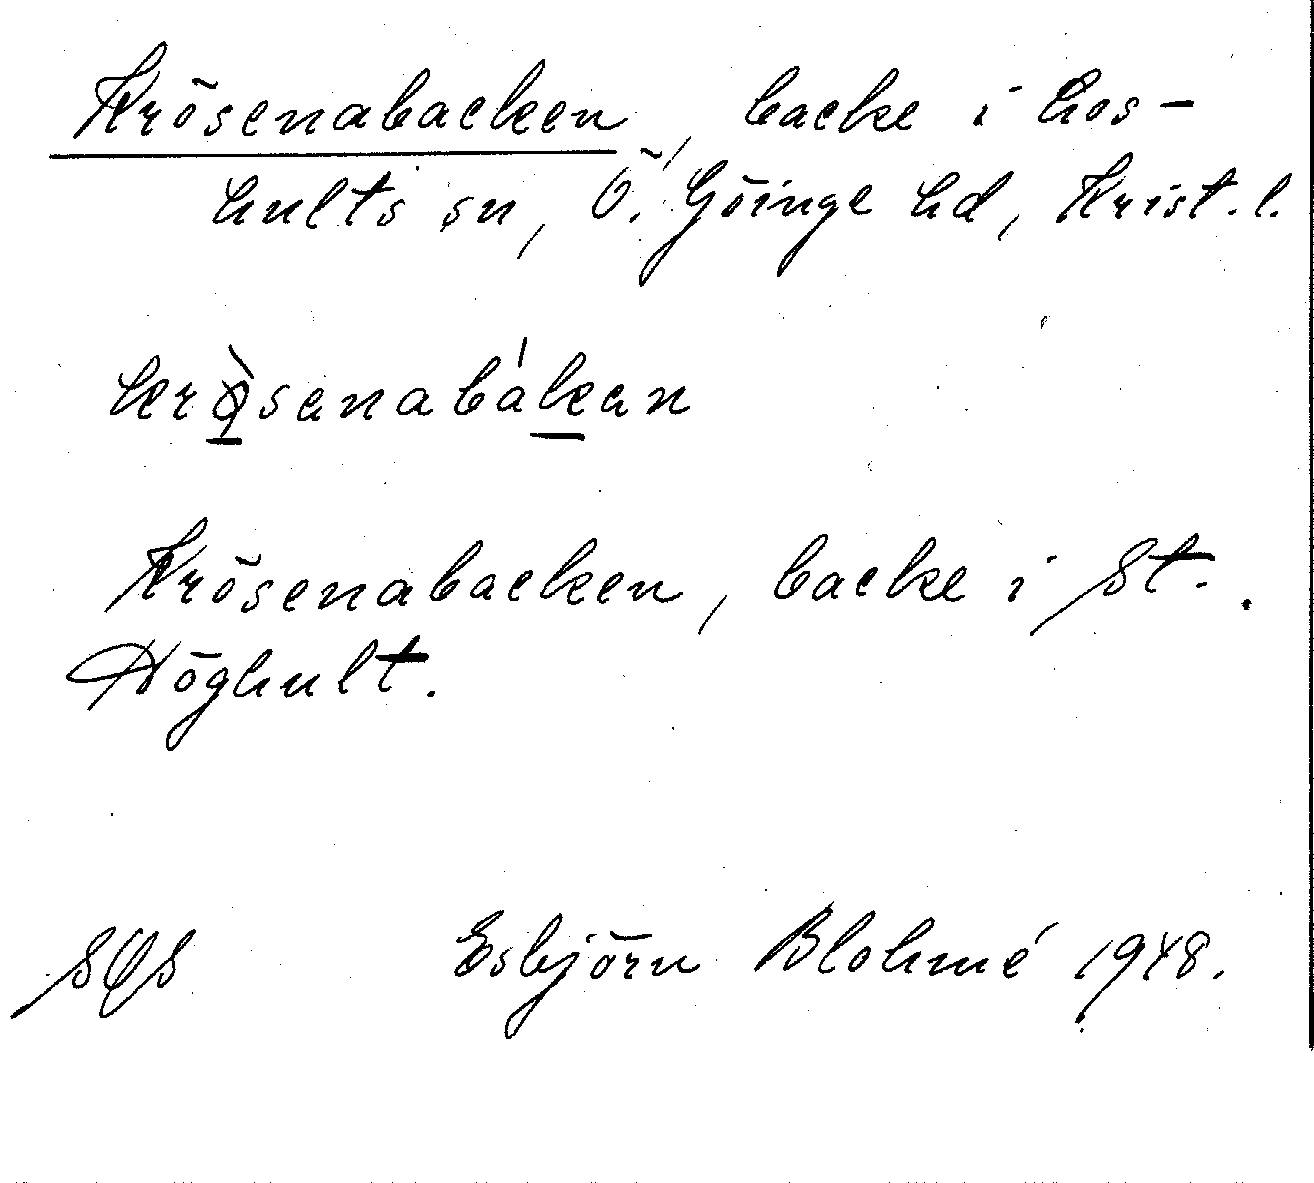 Krösenabacken, backe i Los-
hults sn, Ö. Göinge hd, Krist. l.
krø̀sanabákan
Krösenabacken, backe i St.
Höghult.
SOS Esbjörn Blohmé 1948.